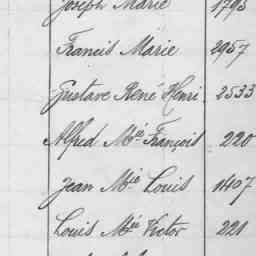 Joseph Marie 1793
Francis Marie 2957
Gustave René Henri 2533
Alfred Mie François 220
Jean Mie Louis 1407
Louis Mie Victor 221